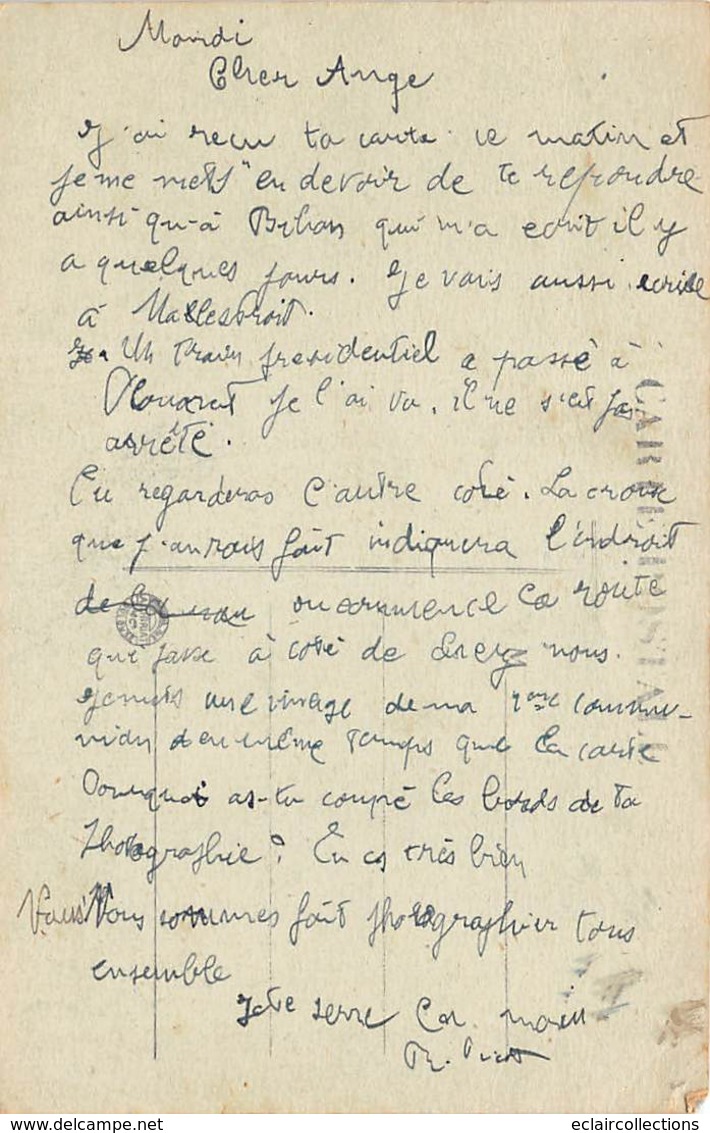 Mardi
Cher Ange
J'ai reçu ta carte ce matin et
je me mets en devoir de te repondre
ainsi qu'à Bihan qui m'a ecrit il y
a quelques jours. Je vais aussi ecrire
à Mallestroit.
Un train presidentiel a passé à
Plouaret je l'ai vu. il ne s'est pas
arrêté.
Tu regarderas l'autre coté. La croix
que j'aurais fait indiquera l'endroit
de la ou commence la route
qui passe à coté de chez nous.
Je mets une image de ma 1ere commu-
nion en même temps que la carte
Pourquoi as-tu coupé les bords de ta
photographie? Tu es très bien
Nous Nous sommes fait photographier tous
ensemble
Je te serre la main
CARTE POSTALE
eclaircollections